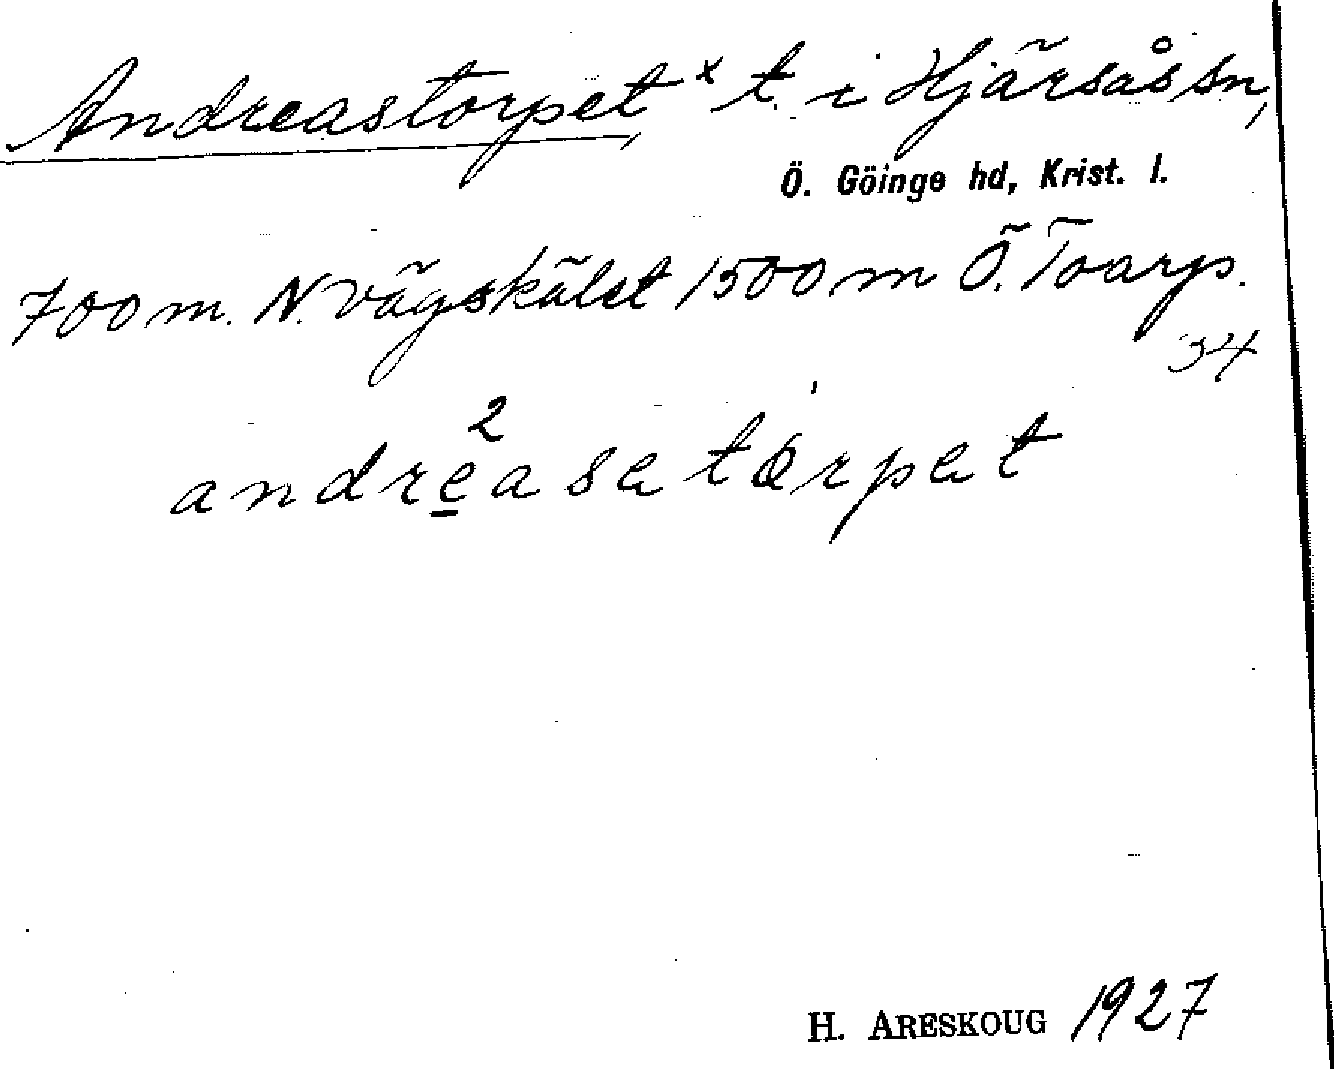 Andreastorpet, x t. i Hjärsås sn,
Ö. Göinge hd, Krist. l.
700 m. N. vägskälet 1500 m Ö. Toarp.
34
2
andreasatorpat
H. ARESKOUG 1927